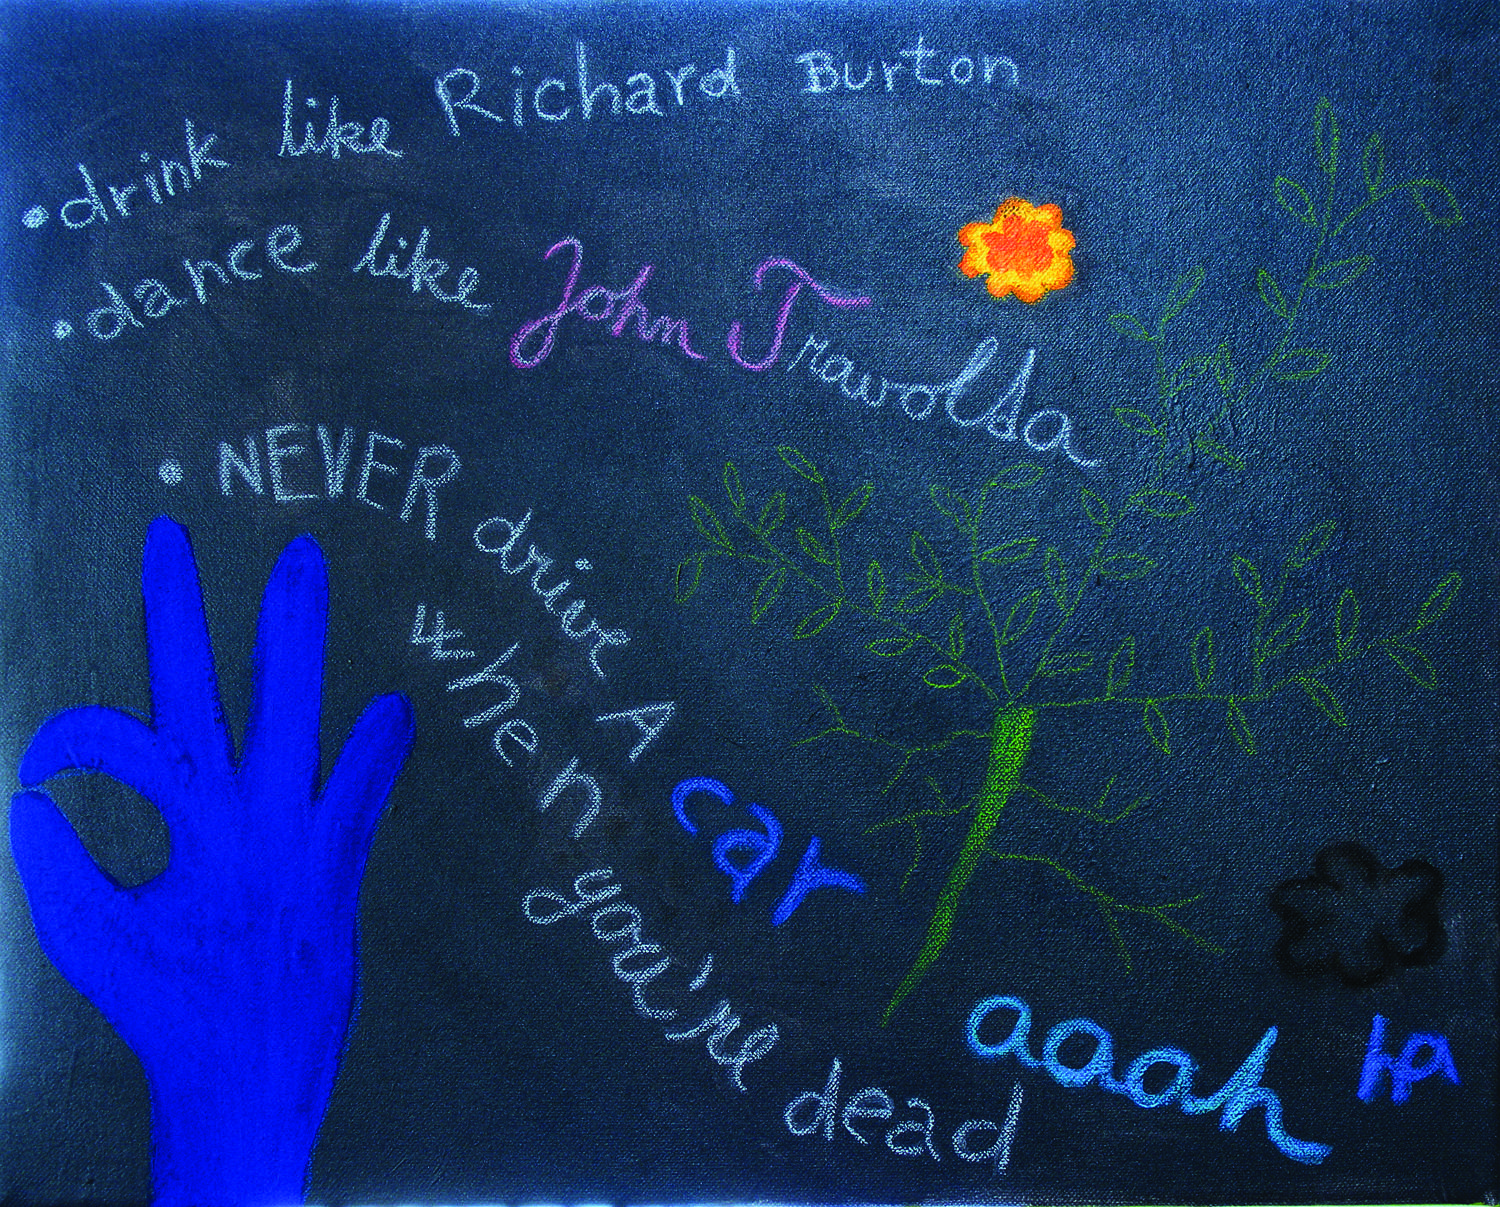 • drink like Richard Burton
• dance like John Trawolsa
• NEVER drive A car
when you're dead
aaah ha